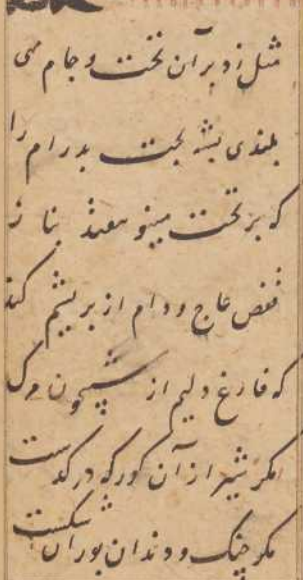 مثل زد برآن تخت و جام می
بلندی بشد بخت بدرام را
که بر تخت مینو نیفتد بنا ز
قفص عاج و دام از بریشم کند
که فارغ دلیم از شبیخون مرک
مکر شیر از آن کور که در کذشت
مکر چنک و دندان بوران شکست